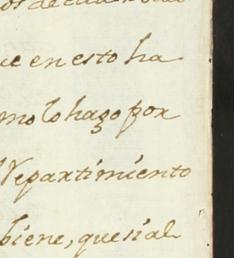 os de cada
ue en esto ha
mo lo hago por
Repartimiento
biene, que si al